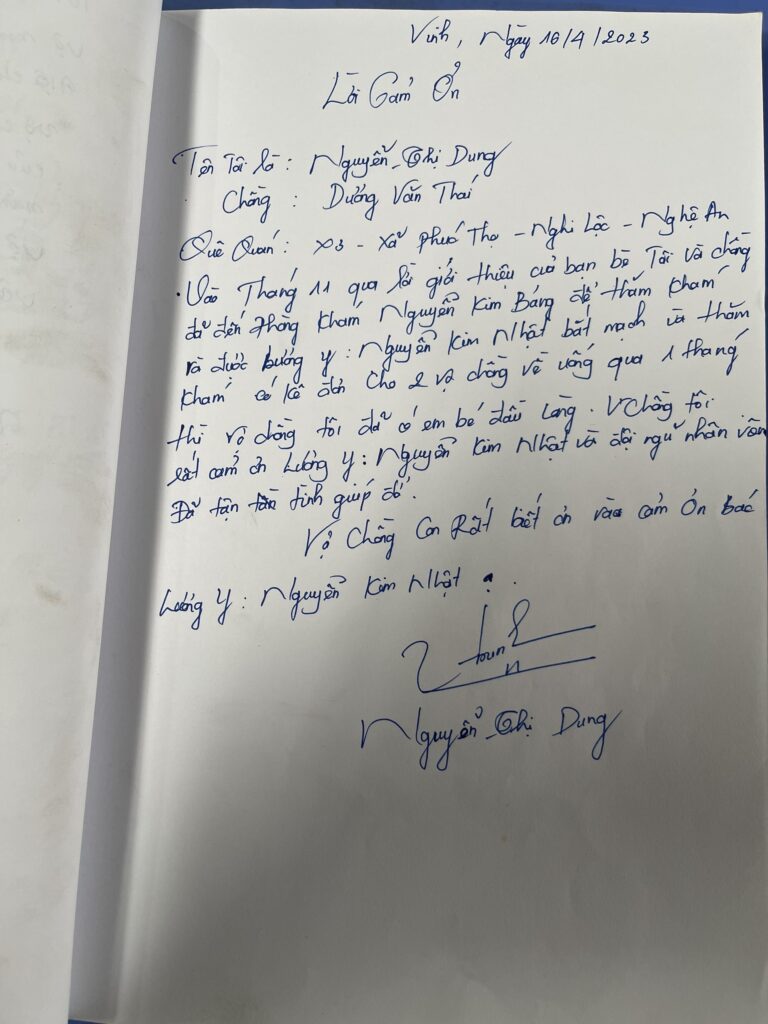 Vinh, Ngày 16/4/2023
Lời Cảm Ơn
Tên Tôi là: Nguyễn Thị Dung
Chồng: Dương Văn Thái
Quê Quán: X3 - Xã Phúc Thọ - Nghi Lộc - Nghệ An
Vào Tháng 11 qua lời giới thiệu của bạn bè Tôi và chồng
đã đến Phòng Khám Nguyễn Kim Bảng để thăm Khám
và được Lương y: Nguyễn Kim Nhật bắt mạch và thăm
Khám có kê đơn cho 2 vợ chồng về uống qua 1 tháng
thì vợ chồng tôi đã có em bé đầu lòng. V chồng tôi
rất cảm ơn Lương y: Nguyễn Kim Nhật và đội ngũ nhân viên
Đã tận tình giúp đỡ.
Vợ Chồng Con Rất biết ơn và cảm ơn bác
Lương y: Nguyễn Kim Nhật.
Nguyễn Thị Dung